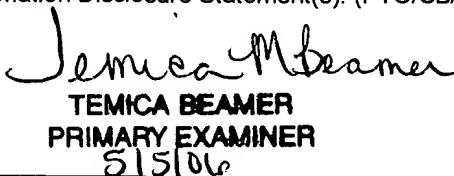 mation Disclosure Statement(s). (PTO/SB/
Temica M Beamer
TEMICA BEAMER
PRIMARY EXAMINER
5/5/06